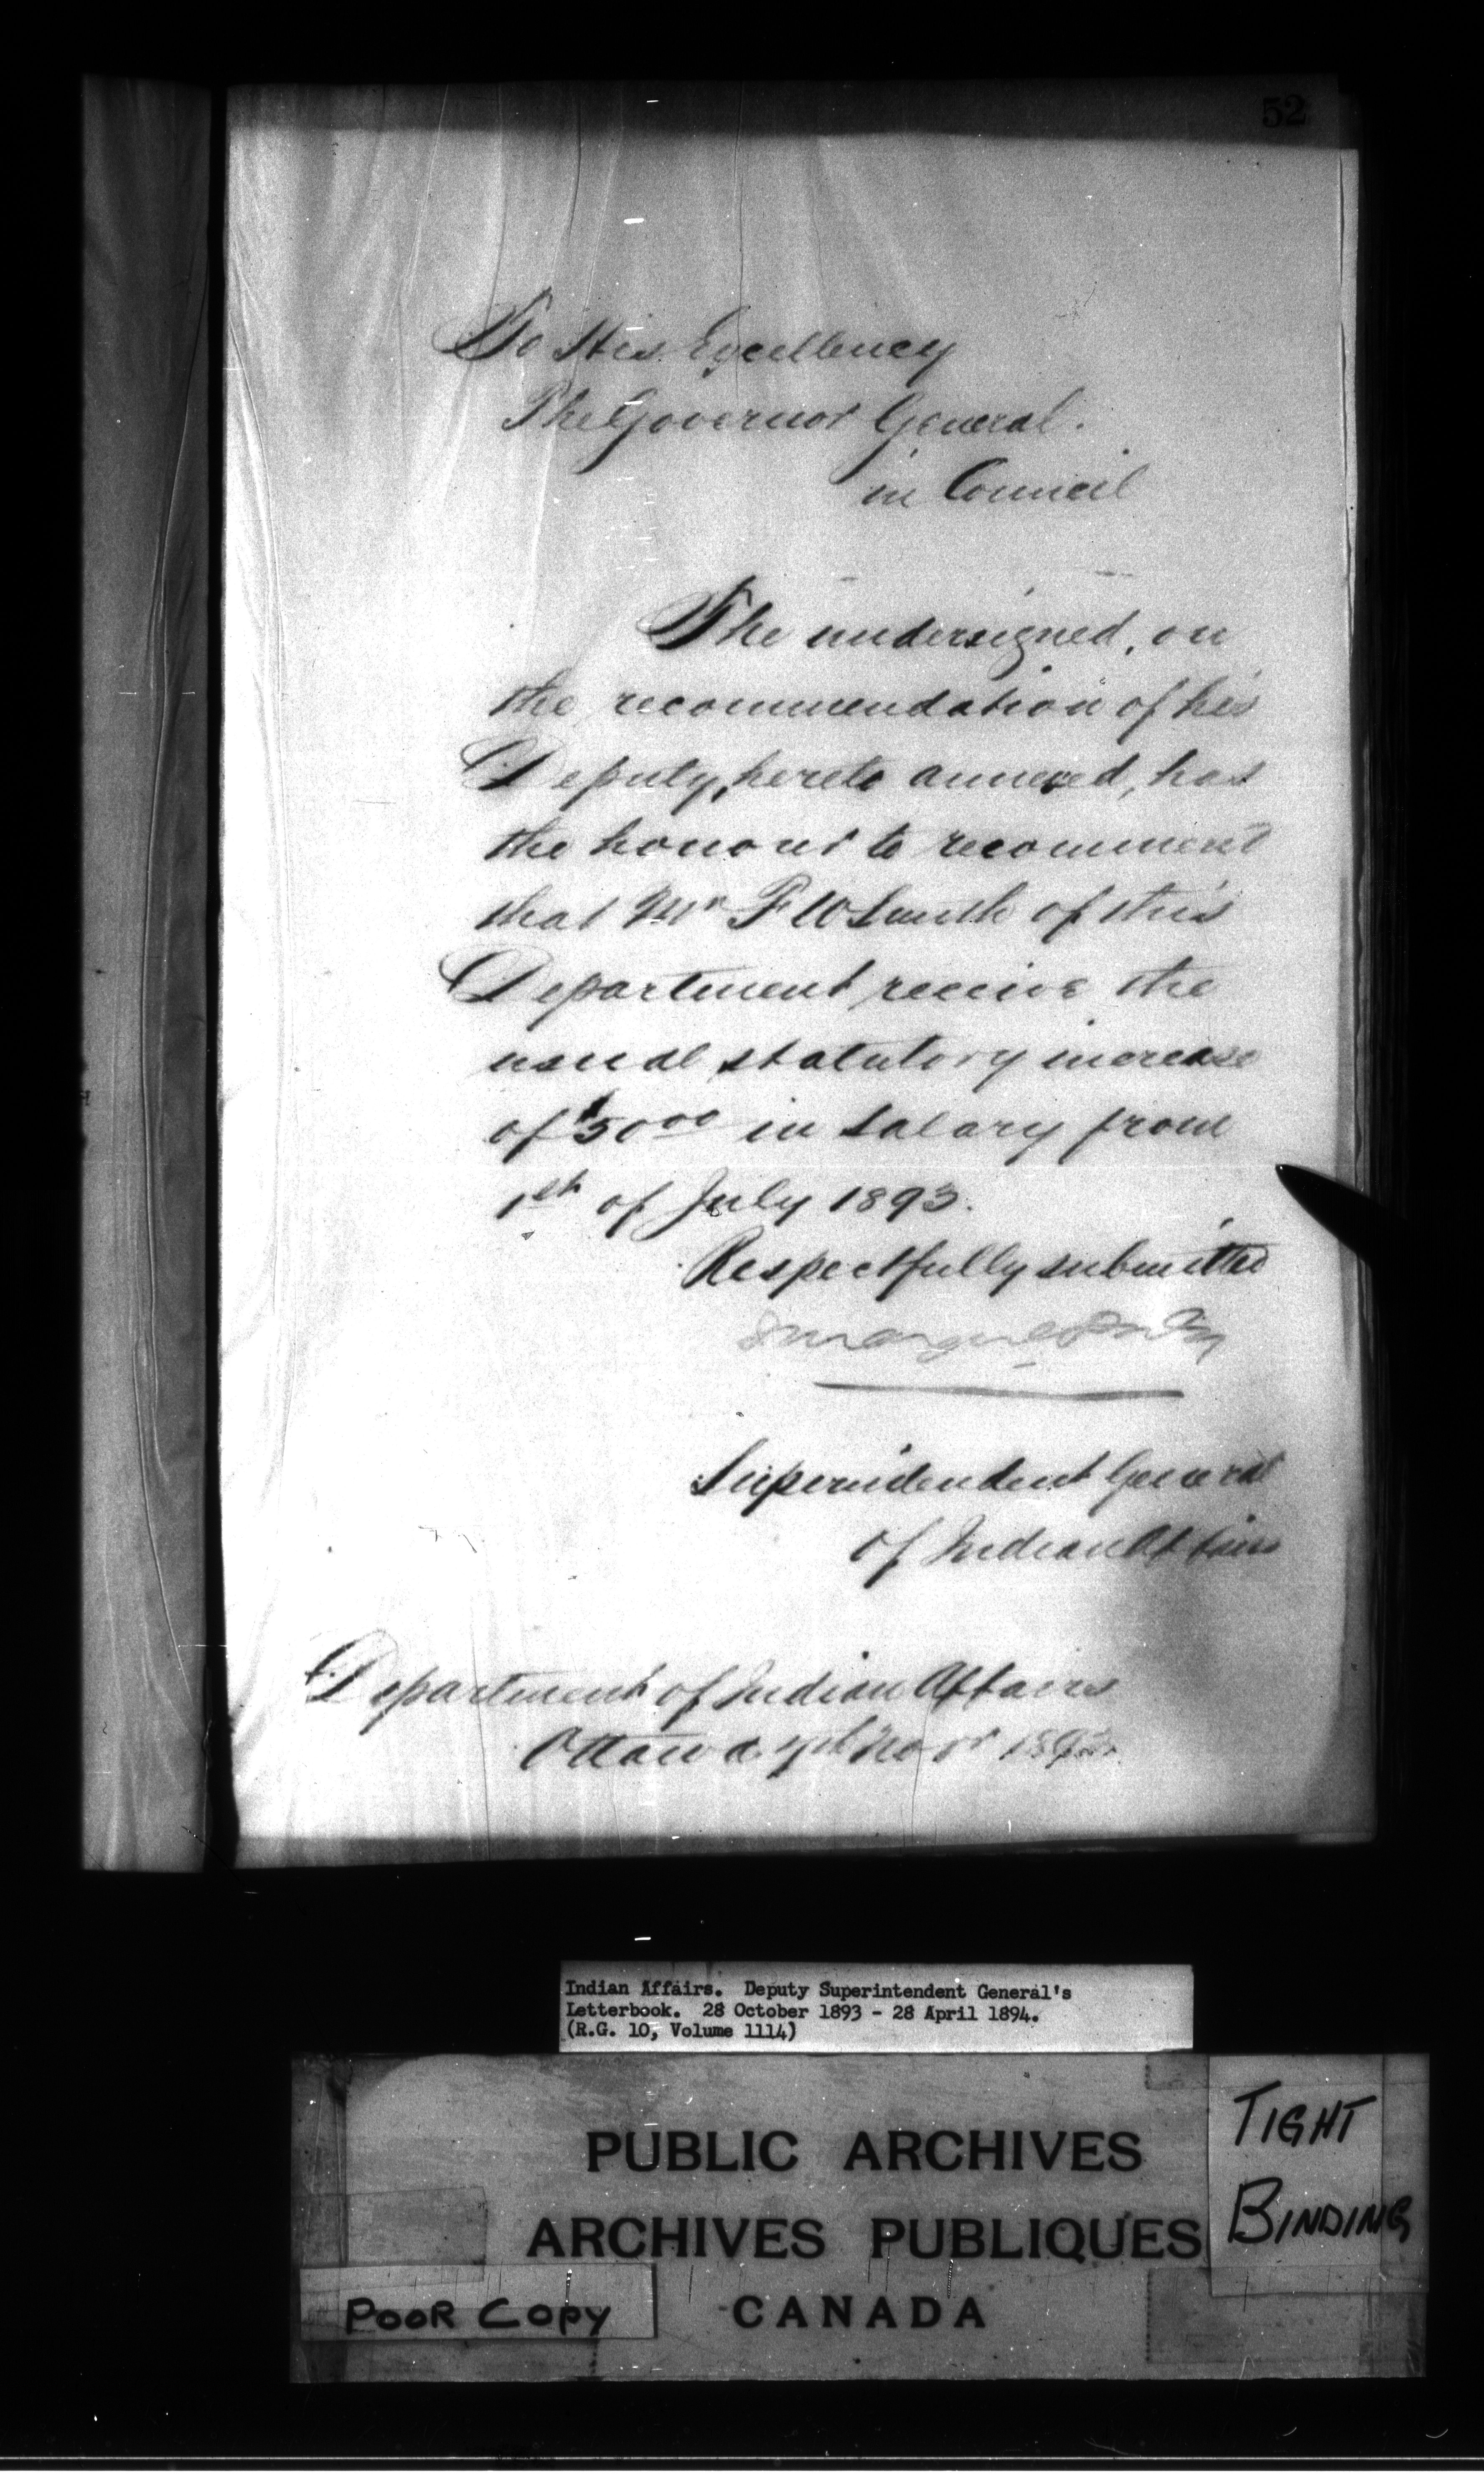 52
To His Excellency
The Governor General.
in Council
The undersigned, on
the recommendation of his
Deputy, hereto annexed, has
the honour to recommend
that Mr F W Smith of this
Department receive the
usual statutory increase
of $50 00 in salary from
1st of July 1893.
Respectfully submitted
Superindendent General
of Indian Affairs
Department of Indian Affairs
Ottawa Novr 1893.
Indian Affairs. Deputy Superintendent General's
Letterbook. 28 October 1893 - 28 April 1894.
(R.G. 10, Volume 1114)
PUBLIC ARCHIVES
ARCHIVES PUBLIQUES
CANADA
TIGHT
BINDING
POOR COPY